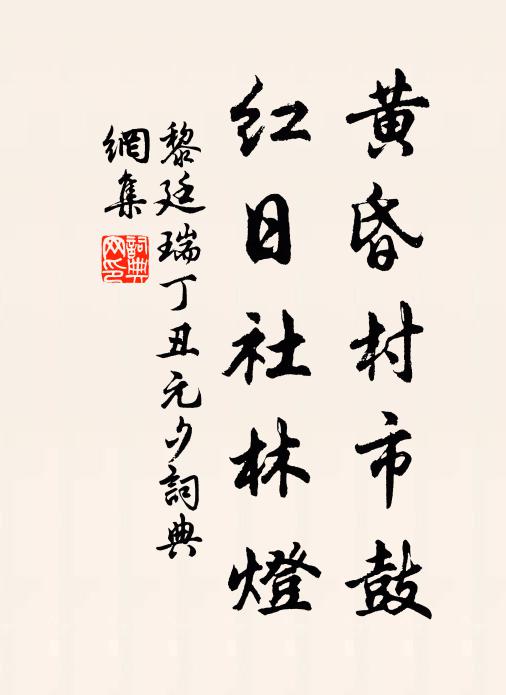 黄昏村市鼓
红日社林燈
黎廷瑞丁丑元夕詞典
網集
詞典
网印